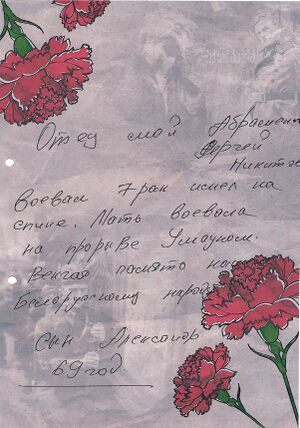 Отец мой Абраменк
Сергей
Никит
воевал 7 ран имел на
спине. Мать воевала
на прорыве
Вечная память
белорусскому народ
Сын Александр
69 год